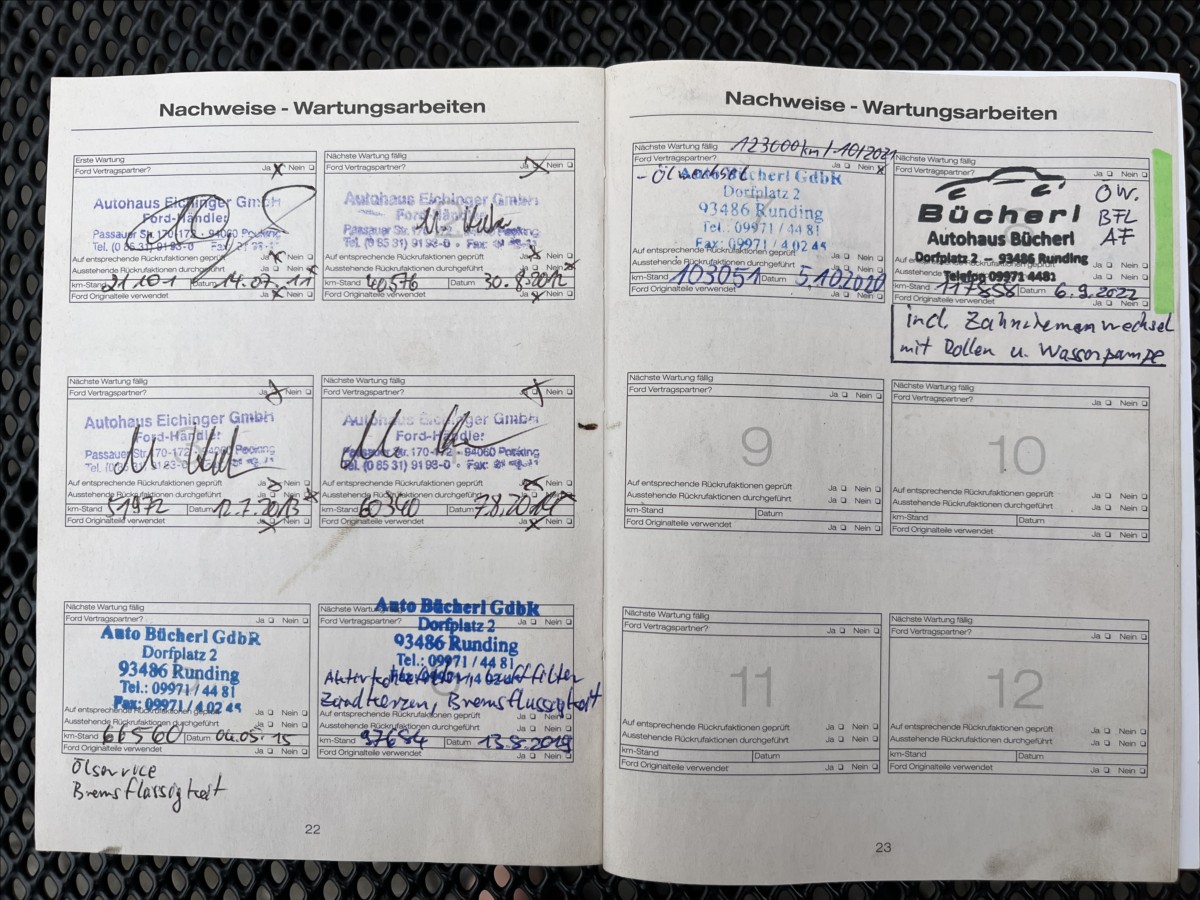 Nachweise - Wartungsarbeiten
Erste Wartung
Ford Vertragspartner? Ja Nein
Autohaus Eichinger GmbH
Ford-Händler
Passauer Str. 170-172 - 94060 Pocking
Tel. (0 85 31) 91 93-0
Auf entsprechende Rückrufaktionen geprüft
Ausstehende Rückrufaktionen durchgeführt
km-Stand 21.101 Datum 14.07.11
Ford Originalteile verwendet Ja Nein
Nächste Wartung fällig
Ford Vertragspartner? Ja Nein
Autohaus Eichinger GmbH
Ford-Händler
Passauer Str. 170-172 - 94060 Pocking
Tel. (0 85 31) 91 93-0 - Fax:
Auf entsprechende Rückrufaktionen geprüft
Ausstehende Rückrufaktionen durchgeführt Nein
km-Stand 40576 Datum 30.8.2012
Ford Originalteile verwendet Ja Nein
Nächste Wartung fällig
Ford Vertragspartner? Ja Nein
Autohaus Eichinger GmbH
Ford-Händler
Passauer Str. 170-172 - 94060 Pocking
Auf entsprechende Rückrufaktionen geprüft
Ausstehende Rückrufaktionen durchgeführt
km-Stand 51972 Datum 12.7.2013
Ford Originalteile verwendet
Nächste Wartung fällig
Ford Vertragspartner? Ja Nein
Autohaus Eichinger GmbH
Ford-Händler
Passauer Str. 170-172 - 94060 Pocking
Tel. (0 85 31) 91 93-0 - Fax:
Auf entsprechende Rückrufaktionen geprüft
Ausstehende Rückrufaktionen durchgeführt
km-Stand 60340 Datum 7.8.2014
Ford Originalteile verwendet Ja Nein
Nächste Wartung fällig
Ford Vertragspartner? Ja Nein
Auto Bücherl GdbR
Dorfplatz 2
93486 Runding
Tel.: 09971 / 44 81
Fax: 09971 / 4 02 45
Auf entsprechende Rückrufaktionen geprüft
Ausstehende Rückrufaktionen durchgeführt Ja Nein
km-Stand 66560 Datum 04.05.15
Ford Originalteile verwendet Ja Nein
Ölservice
Bremsflüssigkeit
Nächste Wartung
Auto Bücherl GdbR
Ford Vertragspartner? Ja Nein
Dorfplatz 2
93486 Runding
Tel.: 09971 / 44 81
Fax: 09971 / 4 02 45
Luftfilter
Zündkerzen, Bremsflüssigkeit
Auf entsprechende Rückrufaktionen geprüft Ja Nein
Ausstehende Rückrufaktionen durchgeführt Ja Nein
km-Stand 97684 Datum 13.8.2019
Ford Originalteile verwendet Ja Nein
22
Nachweise - Wartungsarbeiten
Nächste Wartung fällig 123000km / 10/2021
Ford Vertragspartner? Ja Nein
- Ölwechsel
Auto Bücherl GdbR
Dorfplatz 2
93486 Runding
Tel.: 09971 / 44 81
Fax: 09971 / 4 02 45
Auf entsprechende Rückrufaktionen geprüft Ja Nein
Ausstehende Rückrufaktionen durchgeführt Ja Nein
km-Stand 103051 Datum 5.10.2020
Ford Originalteile verwendet Ja Nein
Nächste Wartung fällig
Ford Vertragspartner? Ja Nein
ÖW.
BFL
AF
Bücherl
Autohaus Bücherl
Dorfplatz 2 - 93486 Runding
Telefon 09971 4481
km-Stand 117858 Datum 6.9.2022
Ford Originalteile verwendet Ja Nein
incl. Zahnriemenwechsel
mit Rollen u. Wasserpumpe
Nächste Wartung fällig
Ford Vertragspartner? Ja Nein
9
Auf entsprechende Rückrufaktionen geprüft Ja Nein
Ausstehende Rückrufaktionen durchgeführt Ja Nein
km-Stand Datum
Ford Originalteile verwendet Ja Nein
Nächste Wartung fällig
Ford Vertragspartner? Ja Nein
10
Auf entsprechende Rückrufaktionen geprüft Ja Nein
Ausstehende Rückrufaktionen durchgeführt Ja Nein
km-Stand Datum
Ford Originalteile verwendet Ja Nein
Nächste Wartung fällig
Ford Vertragspartner? Ja Nein
11
Auf entsprechende Rückrufaktionen geprüft Ja Nein
Ausstehende Rückrufaktionen durchgeführt Ja Nein
km-Stand Datum
Ford Originalteile verwendet Ja Nein
Nächste Wartung fällig
Ford Vertragspartner? Ja Nein
12
Auf entsprechende Rückrufaktionen geprüft Ja Nein
Ausstehende Rückrufaktionen durchgeführt Ja Nein
km-Stand Datum
Ford Originalteile verwendet Ja Nein
23